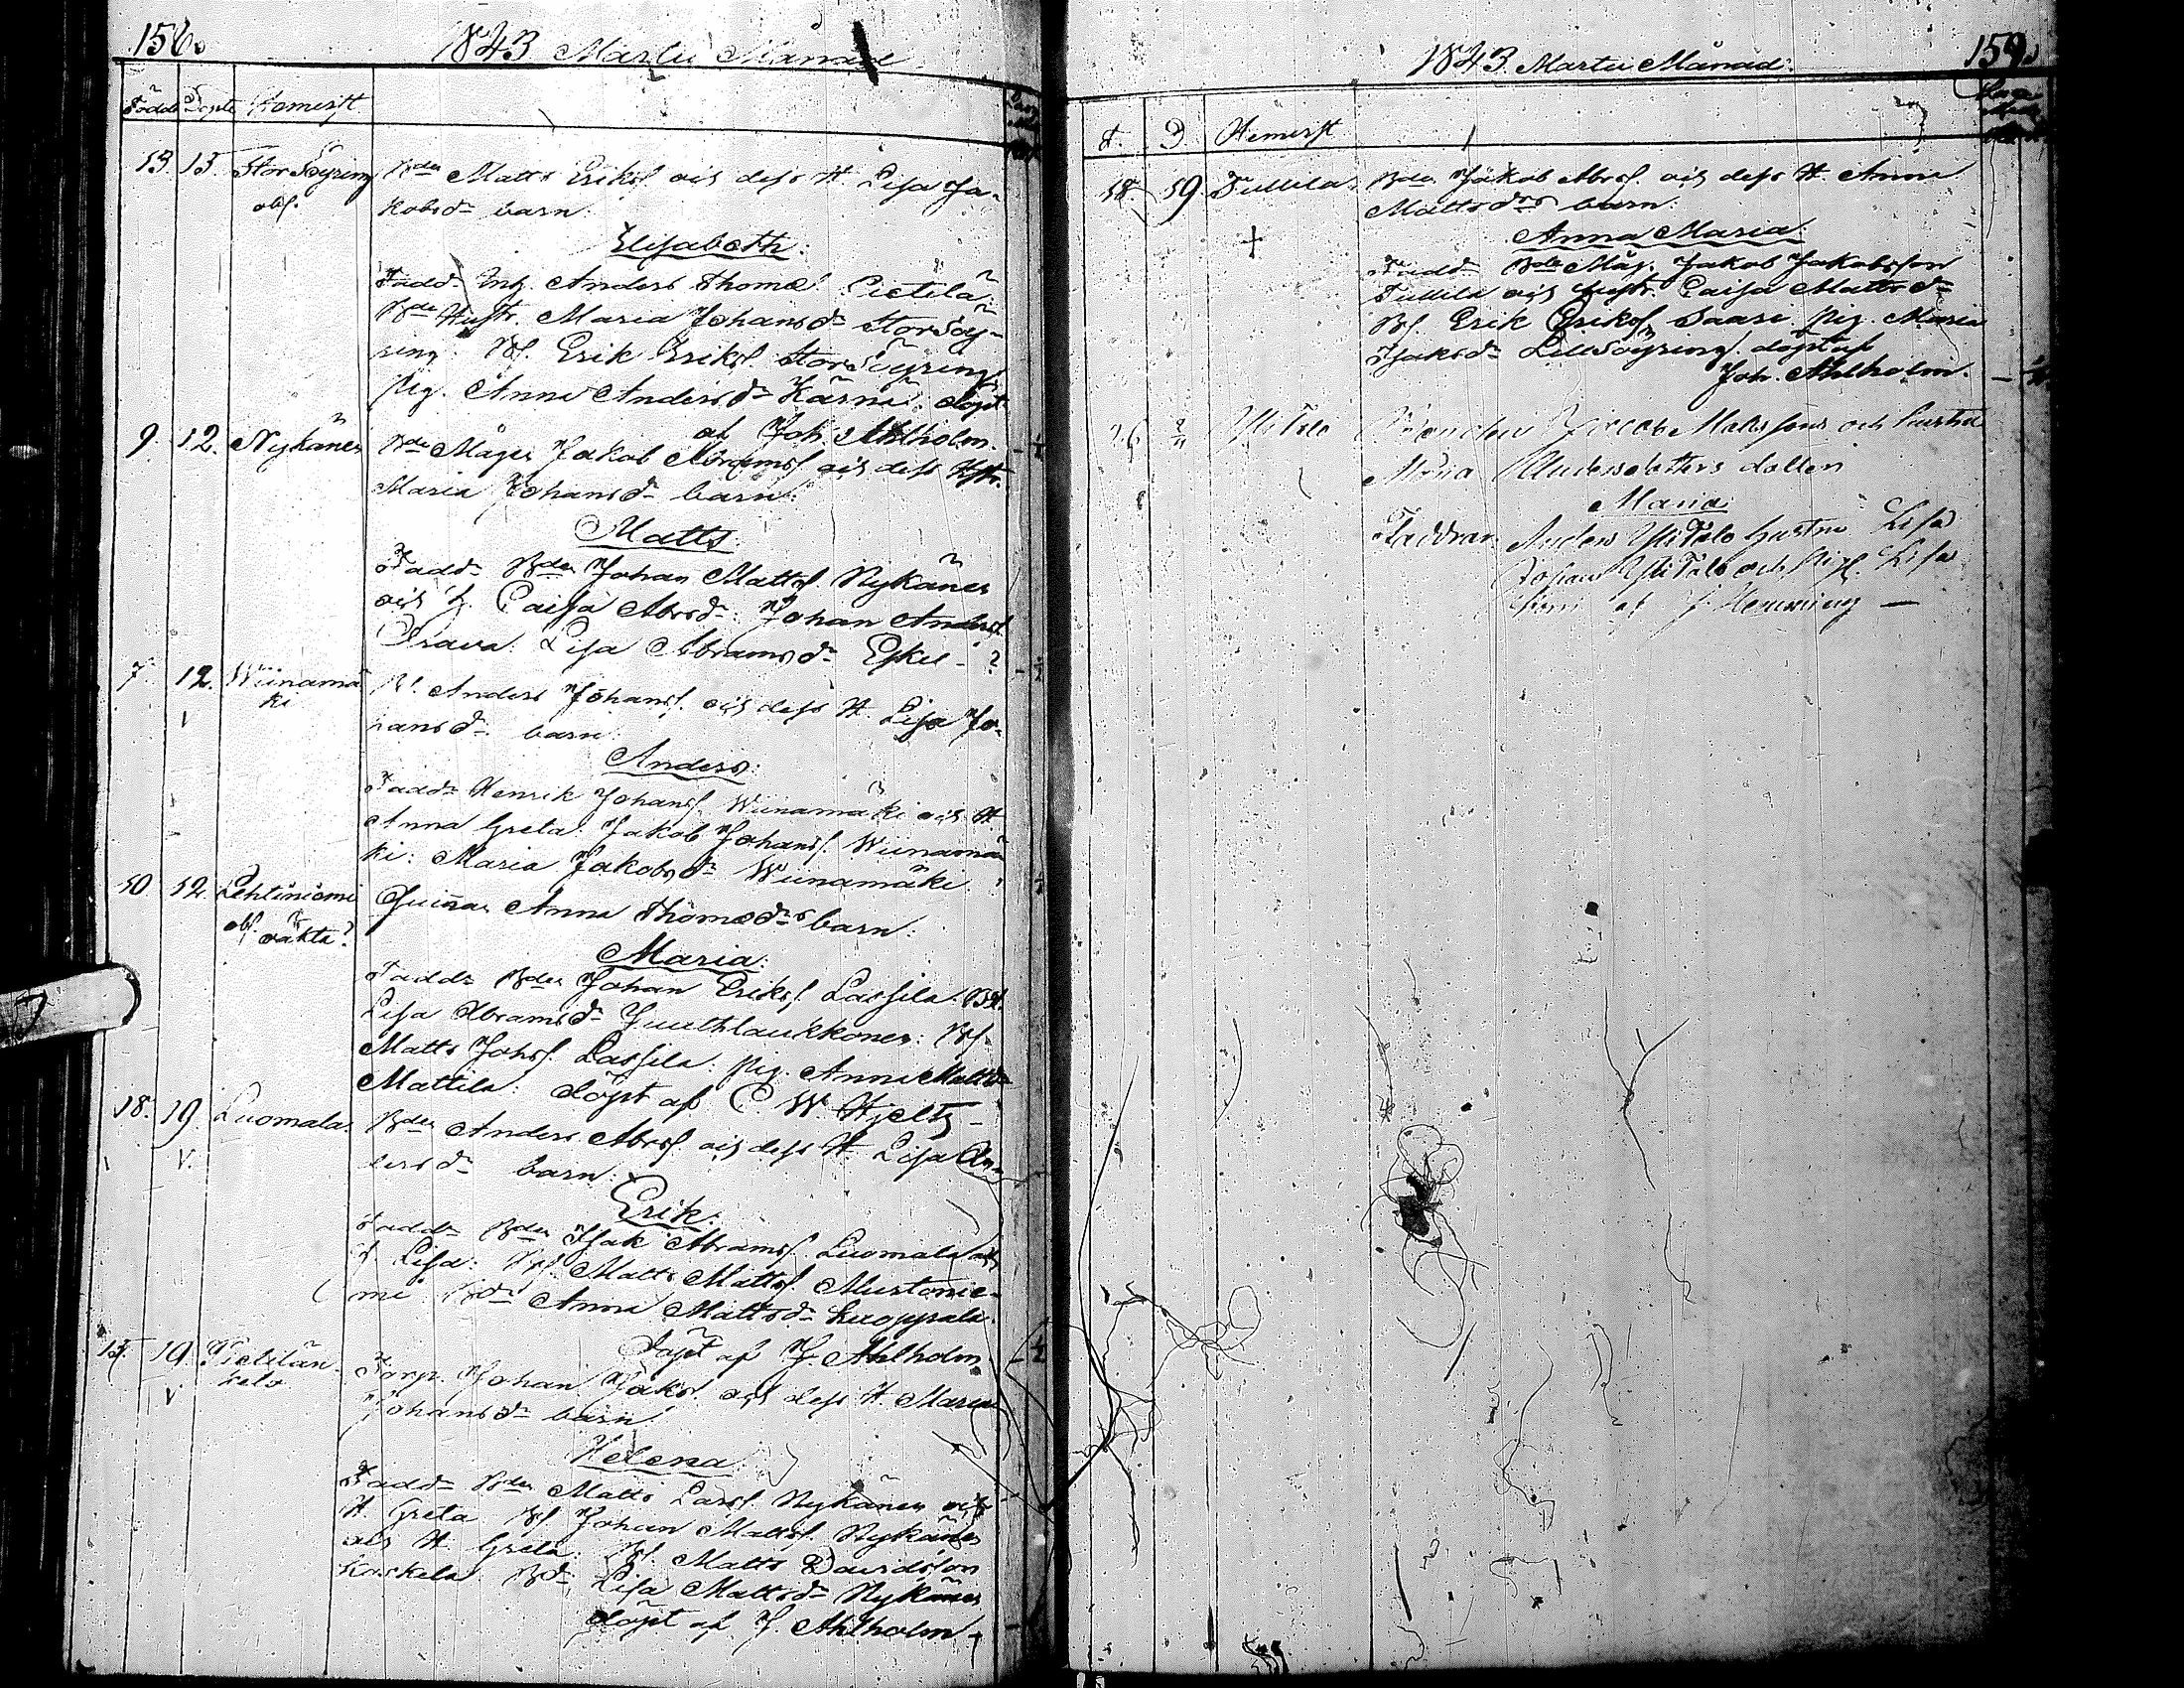 156.
1843 Martii Månad
Född Döpt Hemvist
13. 13. Stor Söyring Bdn Matts Eriks. och dess H. Lisa Ja-
obs. kobsdr barn:
Elisabeth:
Fadd. Anders Thoms. Pietilä:
Bdn Hustr. Maria Johansdr StorSöy-
ring: Bs. Erik Eriks. StorSöyring,
pig. Anna Andersdr Kärnä: döpt
af Joh. Ahlholm.
9. 12. Nykänen Bde Mågen Jakob Abrams. och dess Hstr.
Maria Johansdr barn:
Matts
Fadd. Bdn Johan Matts. Nykänen
och h. Caisa Abrsdr: Johan Anders.
Lisa Abramsdr
7. 12. Wiinamä- Bs. Anders Johans. och dess H. Lisa Jo-
ki hansdr barn:
Anders:
Fadd. Henrik Johans. Wiinamäki och H.
Anna Greta: Jakob Johans. Wiinamä-
ki: Maria Jakobsdr Wiinamäki
10. 12. Lehtiniemi Quinnan Anna Thomædrs barn:
obs. oäkta?
Maria:
Fadd. Bdn Johan Eriks. Lassila:
Lisa Abramsdr Bs.
Matts Johs. Lassila: pig. Anna Mattsdr
Mattila: döpt af C. W. Hjelt
18. 19. Luomala: Bdn Anders Abrs. och dess H. Lisa An-
dersdr barn:
Erik:
Fadd. Bdn Isak Abrams. Luomala och
h. Lisa: Bs. Matts Matts. Mustonie-
mi Bdr Anna Mattsdr Luoppala:
Döpt af J. Ahlholm.
15. 19. Torp. Johan Jaks. och dess H. Maria
Johansdr barn
Helena
Fadd. Bdn Matts Lars. Nykänen och
H. Greta Bs. Johan Matts. Nykänen
och H. Greta: Bs. Matts Davidsson
Koskela: Bdr Lisa Mattsdr Nykänen
döpt af J. Ahlholm
1843 Martii Månad.
159.
F. D Hemvist
18. 19. Tullila Bdn Jakob Abrs. och dess H. Anna
Mattsdrs barn:
Anna Maria
Fadd. Bde Måg. Jakob Jakobsson
Tullila och hustr. Caisa Mattsdr
Bs. Erik Eriks. Saari pig. Maria
Isaksdr LillSöyring: döpt af
Joh. Ahlholm.
26 Yli Talo Bonden Jacob Matssons och hustru
Maria Andersdotters dotter
Maria
Faddrar Anders YliTalo hustru Lisa
Johan YliTalo och Pig. Lisa
af J. Hemming